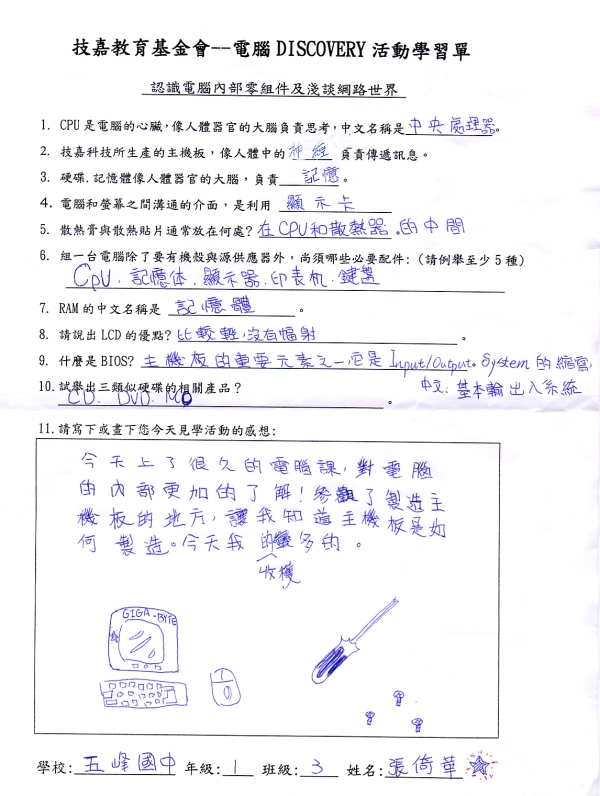 技嘉教育基金會--電腦 DISCOVERY 活動學習單
認識電腦內部零組件及淺談網路世界
1. CPU 是電腦的心臟,像人體器官的大腦負責思考,中文名稱是中央處理器。
2. 技嘉科技所生產的主機板,像人體中的神經 負責傳遞訊息。
3. 硬碟.記憶體像人體器官的大腦,負責 記憶。
4. 電腦和螢幕之間溝通的介面,是利用 顯示卡
5. 散熱膏與散熱貼片通常放在何處? 在CPU和散熱器。的中間
6. 組一台電腦除了要有機殼與源供應器外,尚須哪些必要配件:(請例舉至少 5 種)
CpU. 記憶体. 顯示器. 印表机. 鍵盤
7. RAM 的中文名稱是 記憶體 。
8. 請說出 LCD 的優點? 比較輕,沒有幅射 。
9. 什麼是 BIOS? 主機板的重要元素之一,它是 Input/Output。System 的縮寫,
中文: 基本輸出入系統
10.試舉出三類似硬碟的相關產品?
CD. DVD. MO 。
11.請寫下或畫下您今天見學活動的感想:
今天上了很久的電腦課,對電腦
的內部更加的了解!參觀了製造主
機板的地方,讓我知道主機板是如
何製造。今天我的蠻多的。
收穫
GIGA-BYTE
學校: 五峰國中 年級: 1 班級: 3 姓名: 張倚華